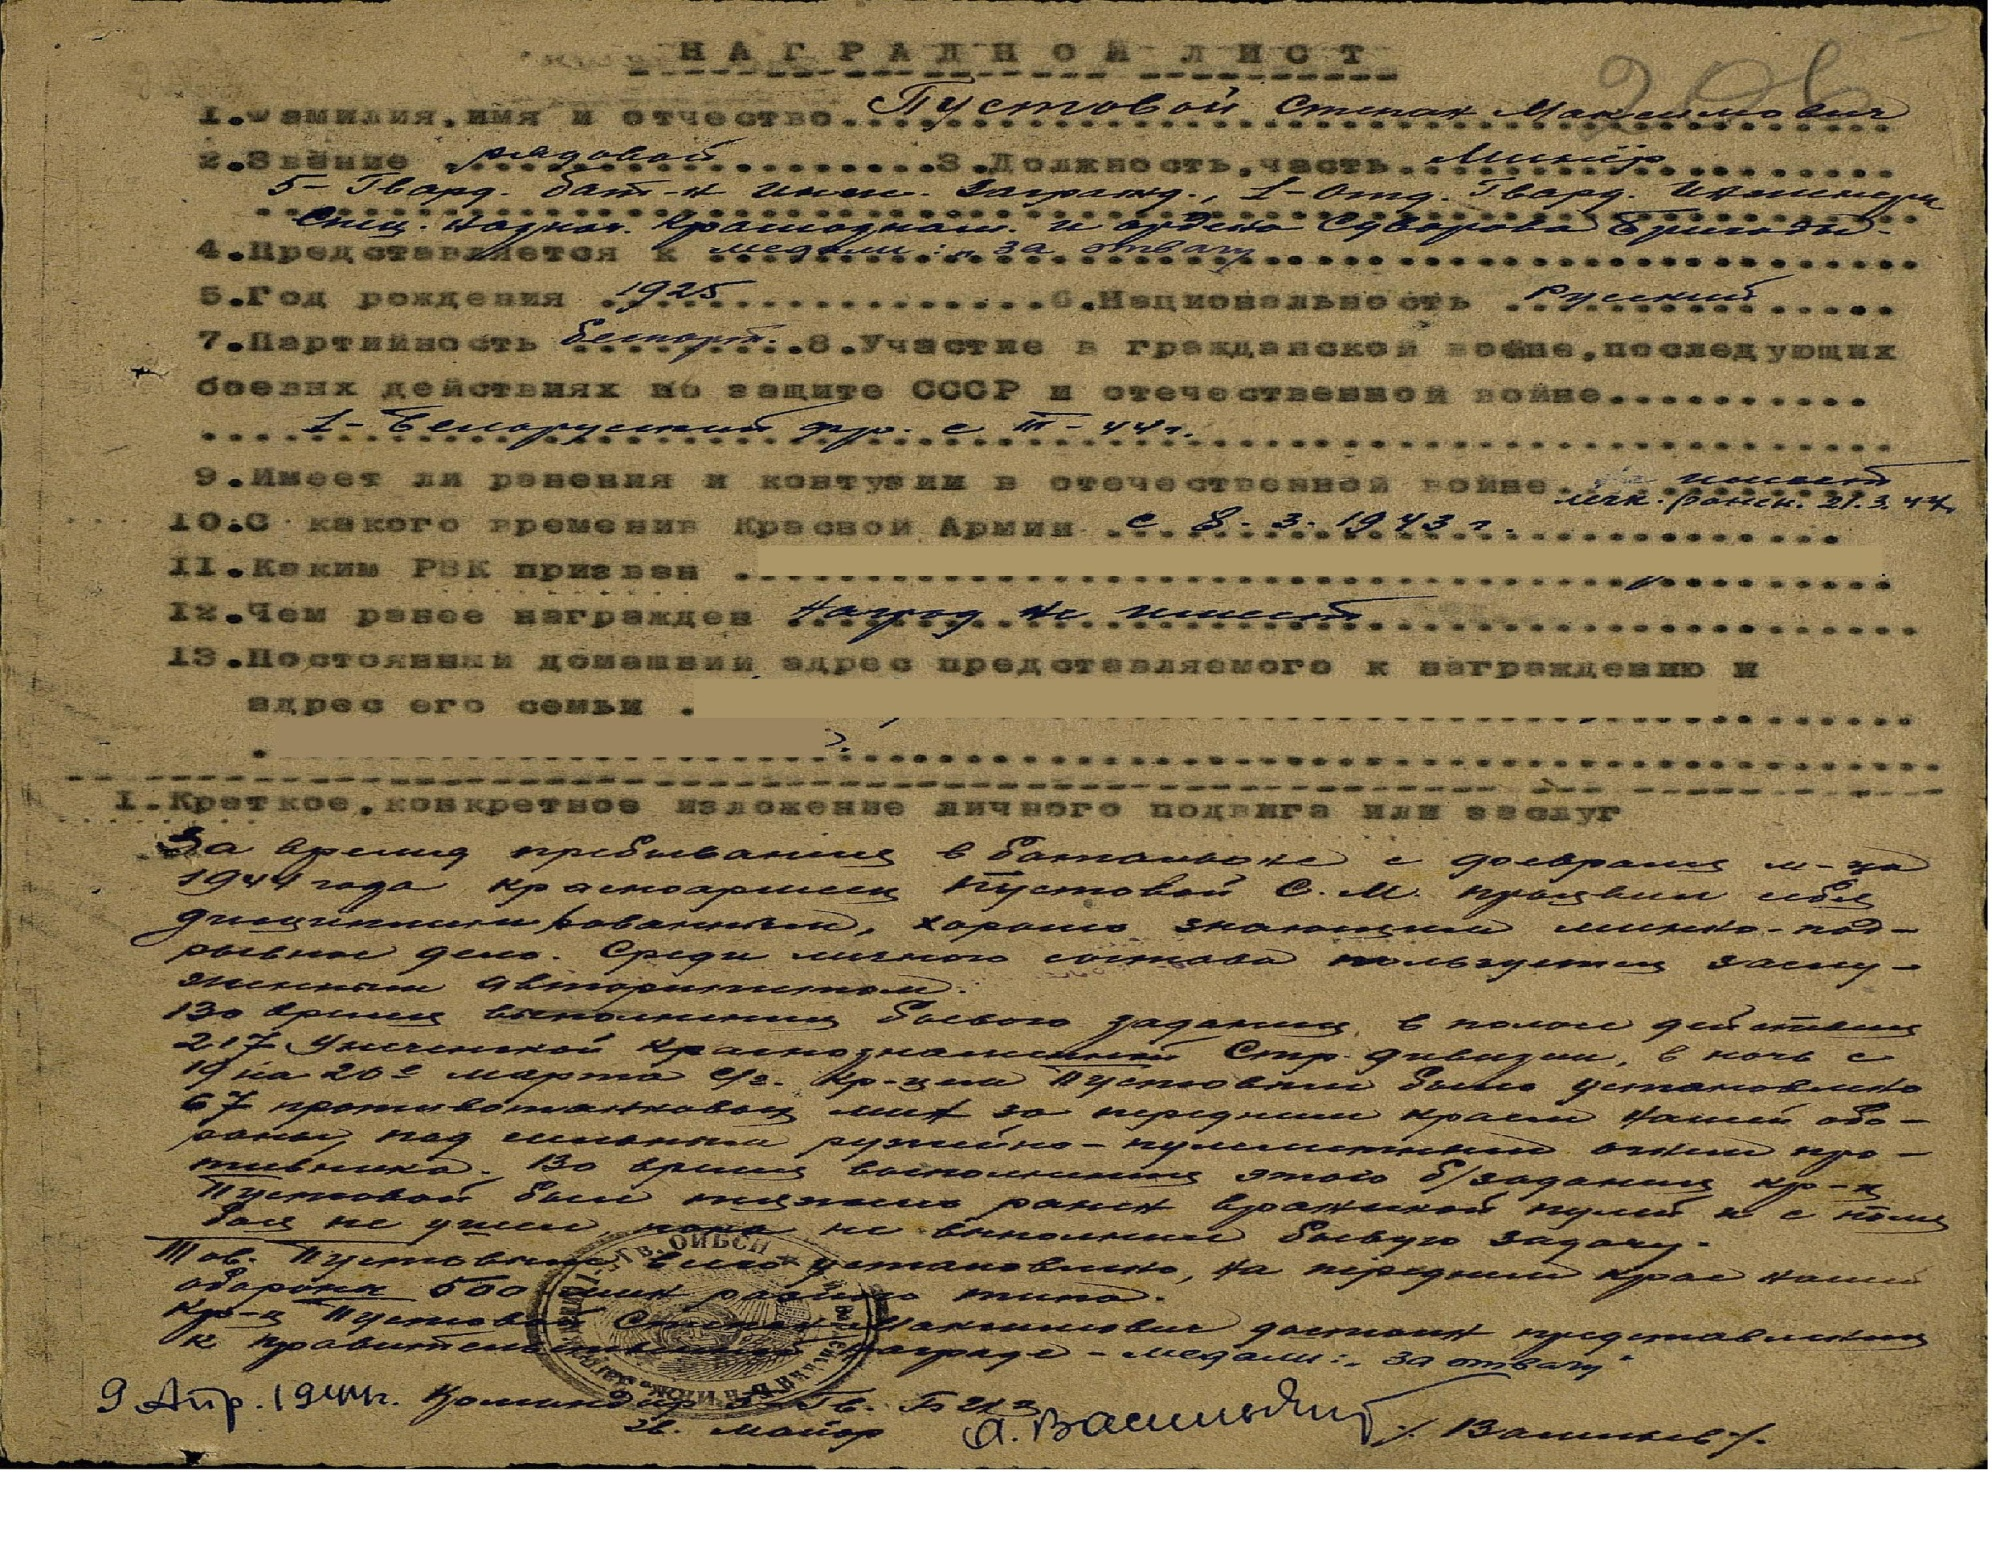 НАГРАДНОЙ ЛИСТ
206
1.Фамилия,имя и отчество Пустовой Степан Максимович
2.Звание рядовой 3.Должность,часть Минёр
5-Гвард. бат-н инж. Загражд., 1-Отд. Гвард. Инженерн
Спец. Назнач. Краснознам. и ордена Суворова Бригады.
4.Представляется к медали: „За отвагу
5.Год рождения 1925 6.Национальность Русский
7.Партийность беспарт. 8.Участие в гражданской войне,последующих
боевых действиях по защите СССР и отечественной войне
1-Белорусский фр. с III-44г.
9.Имеет ли ранения и контузии в отечественной войне имеет
легк. ранен. 21.3.44г.
10.С какого времени в Красной Армии с 8-3-1943г.
11.Каким РВК призван
12.Чем ранее награжден Наград не имеет
13.Постоянный домашний адрес представляемого к награждению и
адрес его семьи
I.Краткое,конкретное изложение личного подвига или заслуг
За время пребывания в батальоне с февраля м-ца
1944 года красноармеец Пустовой С.М. проявил себя
дисциплинированным, хорошо знающим минно-под-
рывное дело. Среди личного состава пользуется заслу-
женным авторитетом.
Во время выполнения боевого задания, в полосе действия
217 Унеченской Краснознаменной Стр. дивизии, в ночь с
19 на 20е марта с/г. кр-цем Пустовым было установлено
67 противотанковых мин за передним краем нашей обо-
роны, под сильным ружейно-пулеметным огнем про-
тивника. Во время выполнения этого б/задания кр-ц
Пустовой был тяжело ранен вражеской пулей и с поля
боя не ушел, пока не выполнил боевую задачу.
Тов. Пустовым всего установлено, на переднем крае нашей
обороны 500 мин разного типа.
Кр-ц Пустовой Степан Максимович достоин представления
к правительственной награде - медали: „За отвагу"
9 Апр. 1944г. Командир 5-Гв. БИЗ
Гв. майор А. Васильев /Васильев/.